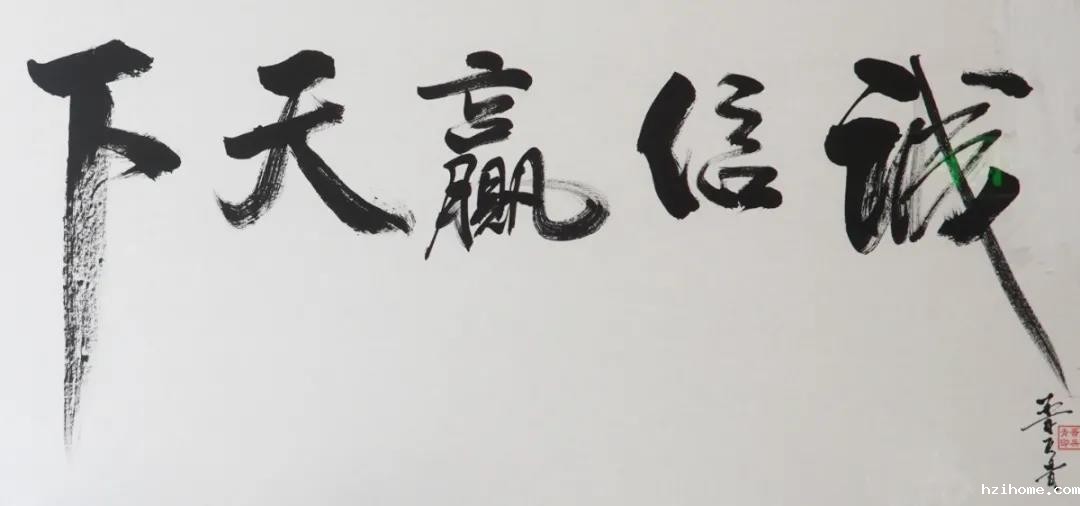 诚信赢天下
hzihome.com